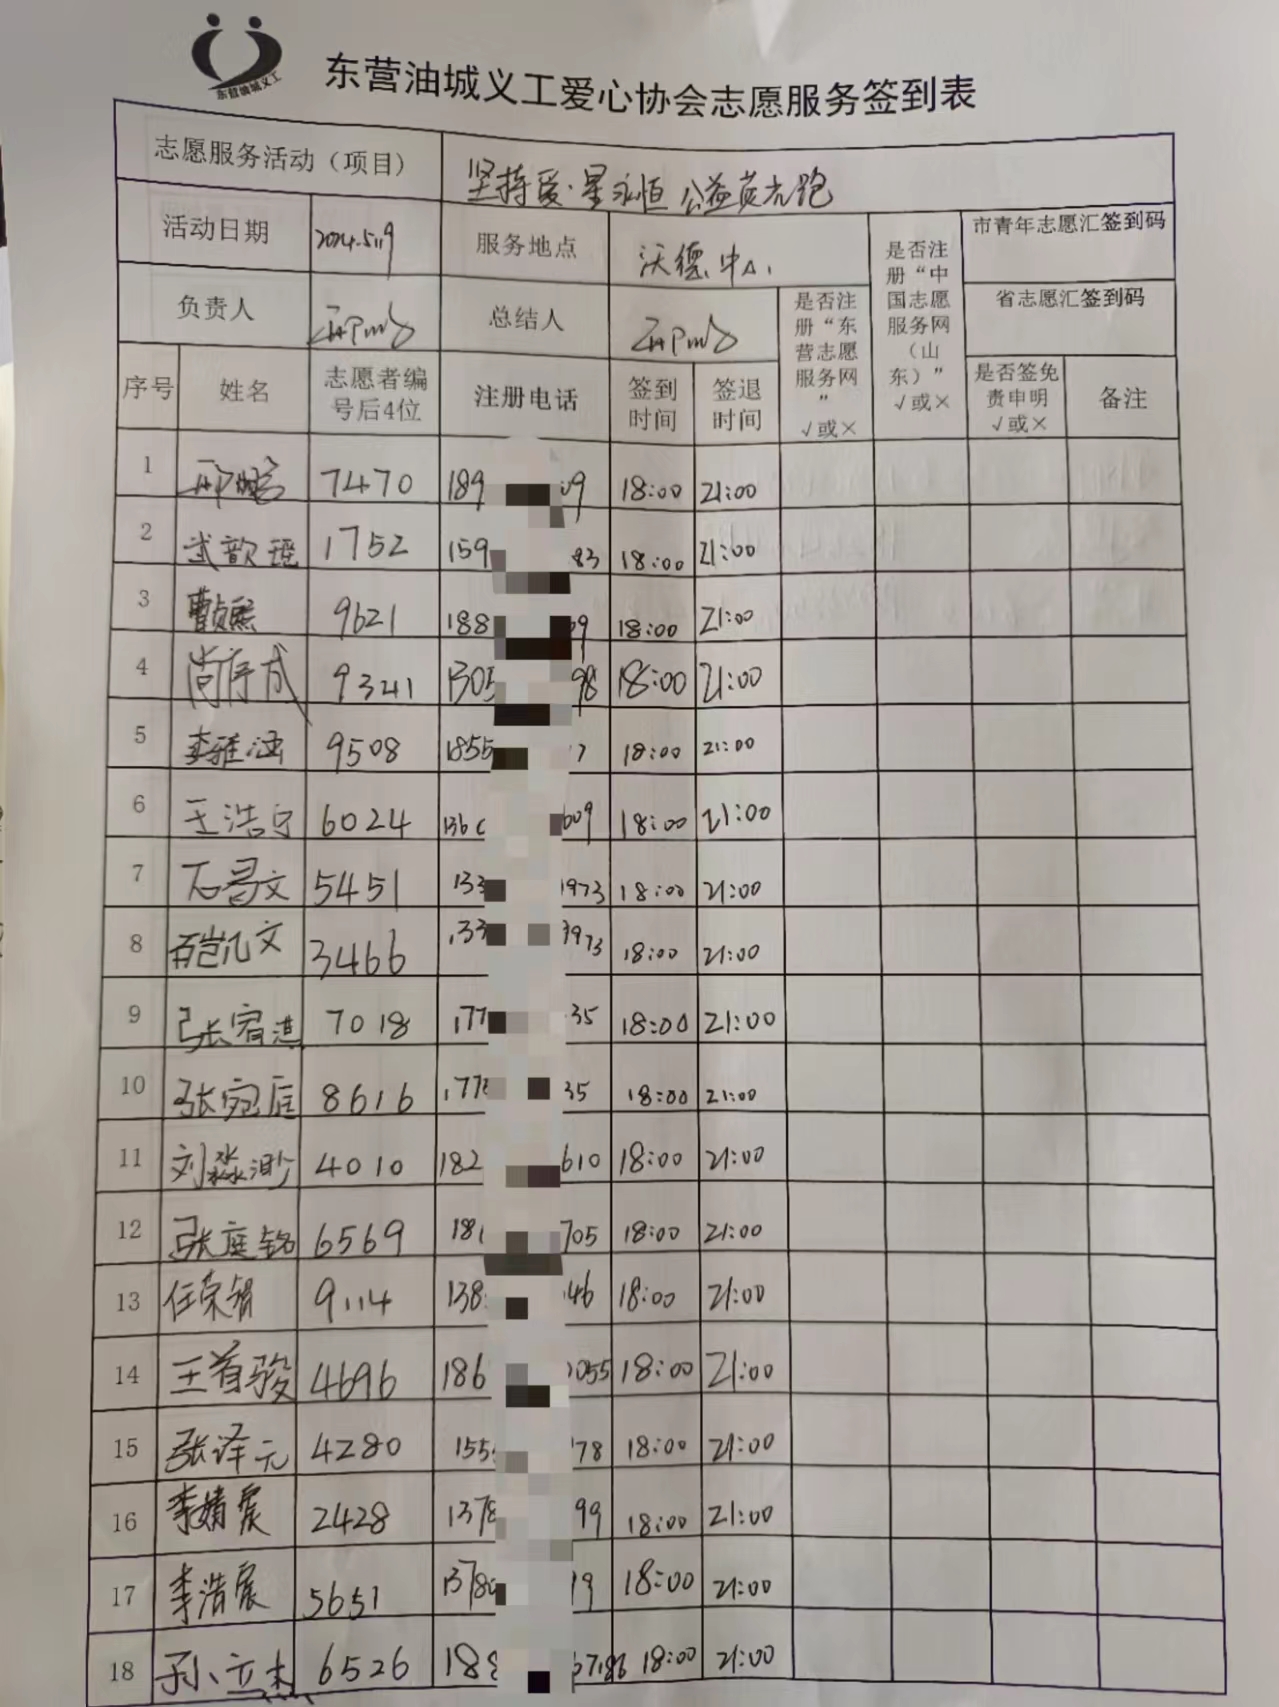 东营油城义工
东营油城义工爱心协会志愿服务签到表
志愿服务活动（项目） 坚持爱·星永恒 公益荧光跑
活动日期 2024.5.19 服务地点 沃德中心 是否注册“中国志愿服务网（山东）” √或× 市青年志愿汇签到码
负责人 总结人 是否注册“东营志愿服务网” √或× 省志愿汇签到码
序号 姓名 志愿者编号后4位 注册电话 签到时间 签退时间 是否签免责申明 √或× 备注
1 7470 189 09 18:00 21:00
2 武歆瑶 1752 159 83 18:00 21:00
3 9621 188 09 18:00 21:00
4 尚存成 9341 1305 98 18:00 21:00
5 李雅涵 9508 1855 7 18:00 21:00
6 王浩宇 6024 136 609 18:00 21:00
7 石昌文 5451 133 1973 18:00 21:00
8 3466 133 1973 18:00 21:00
9 张宥淇 7018 177 35 18:00 21:00
10 张宛辰 8616 177 35 18:00 21:00
11 刘淼渺 4010 182 610 18:00 21:00
12 张庭铭 6569 181 705 18:00 21:00
13 任荣娟 9114 138 46 18:00 21:00
14 王首骏 4696 186 055 18:00 21:00
15 张泽元 4280 155 78 18:00 21:00
16 李婧宸 2428 1378 99 18:00 21:00
17 李浩宸 5651 1378 19 18:00 21:00
18 孙立杰 6526 188 18:00 21:00